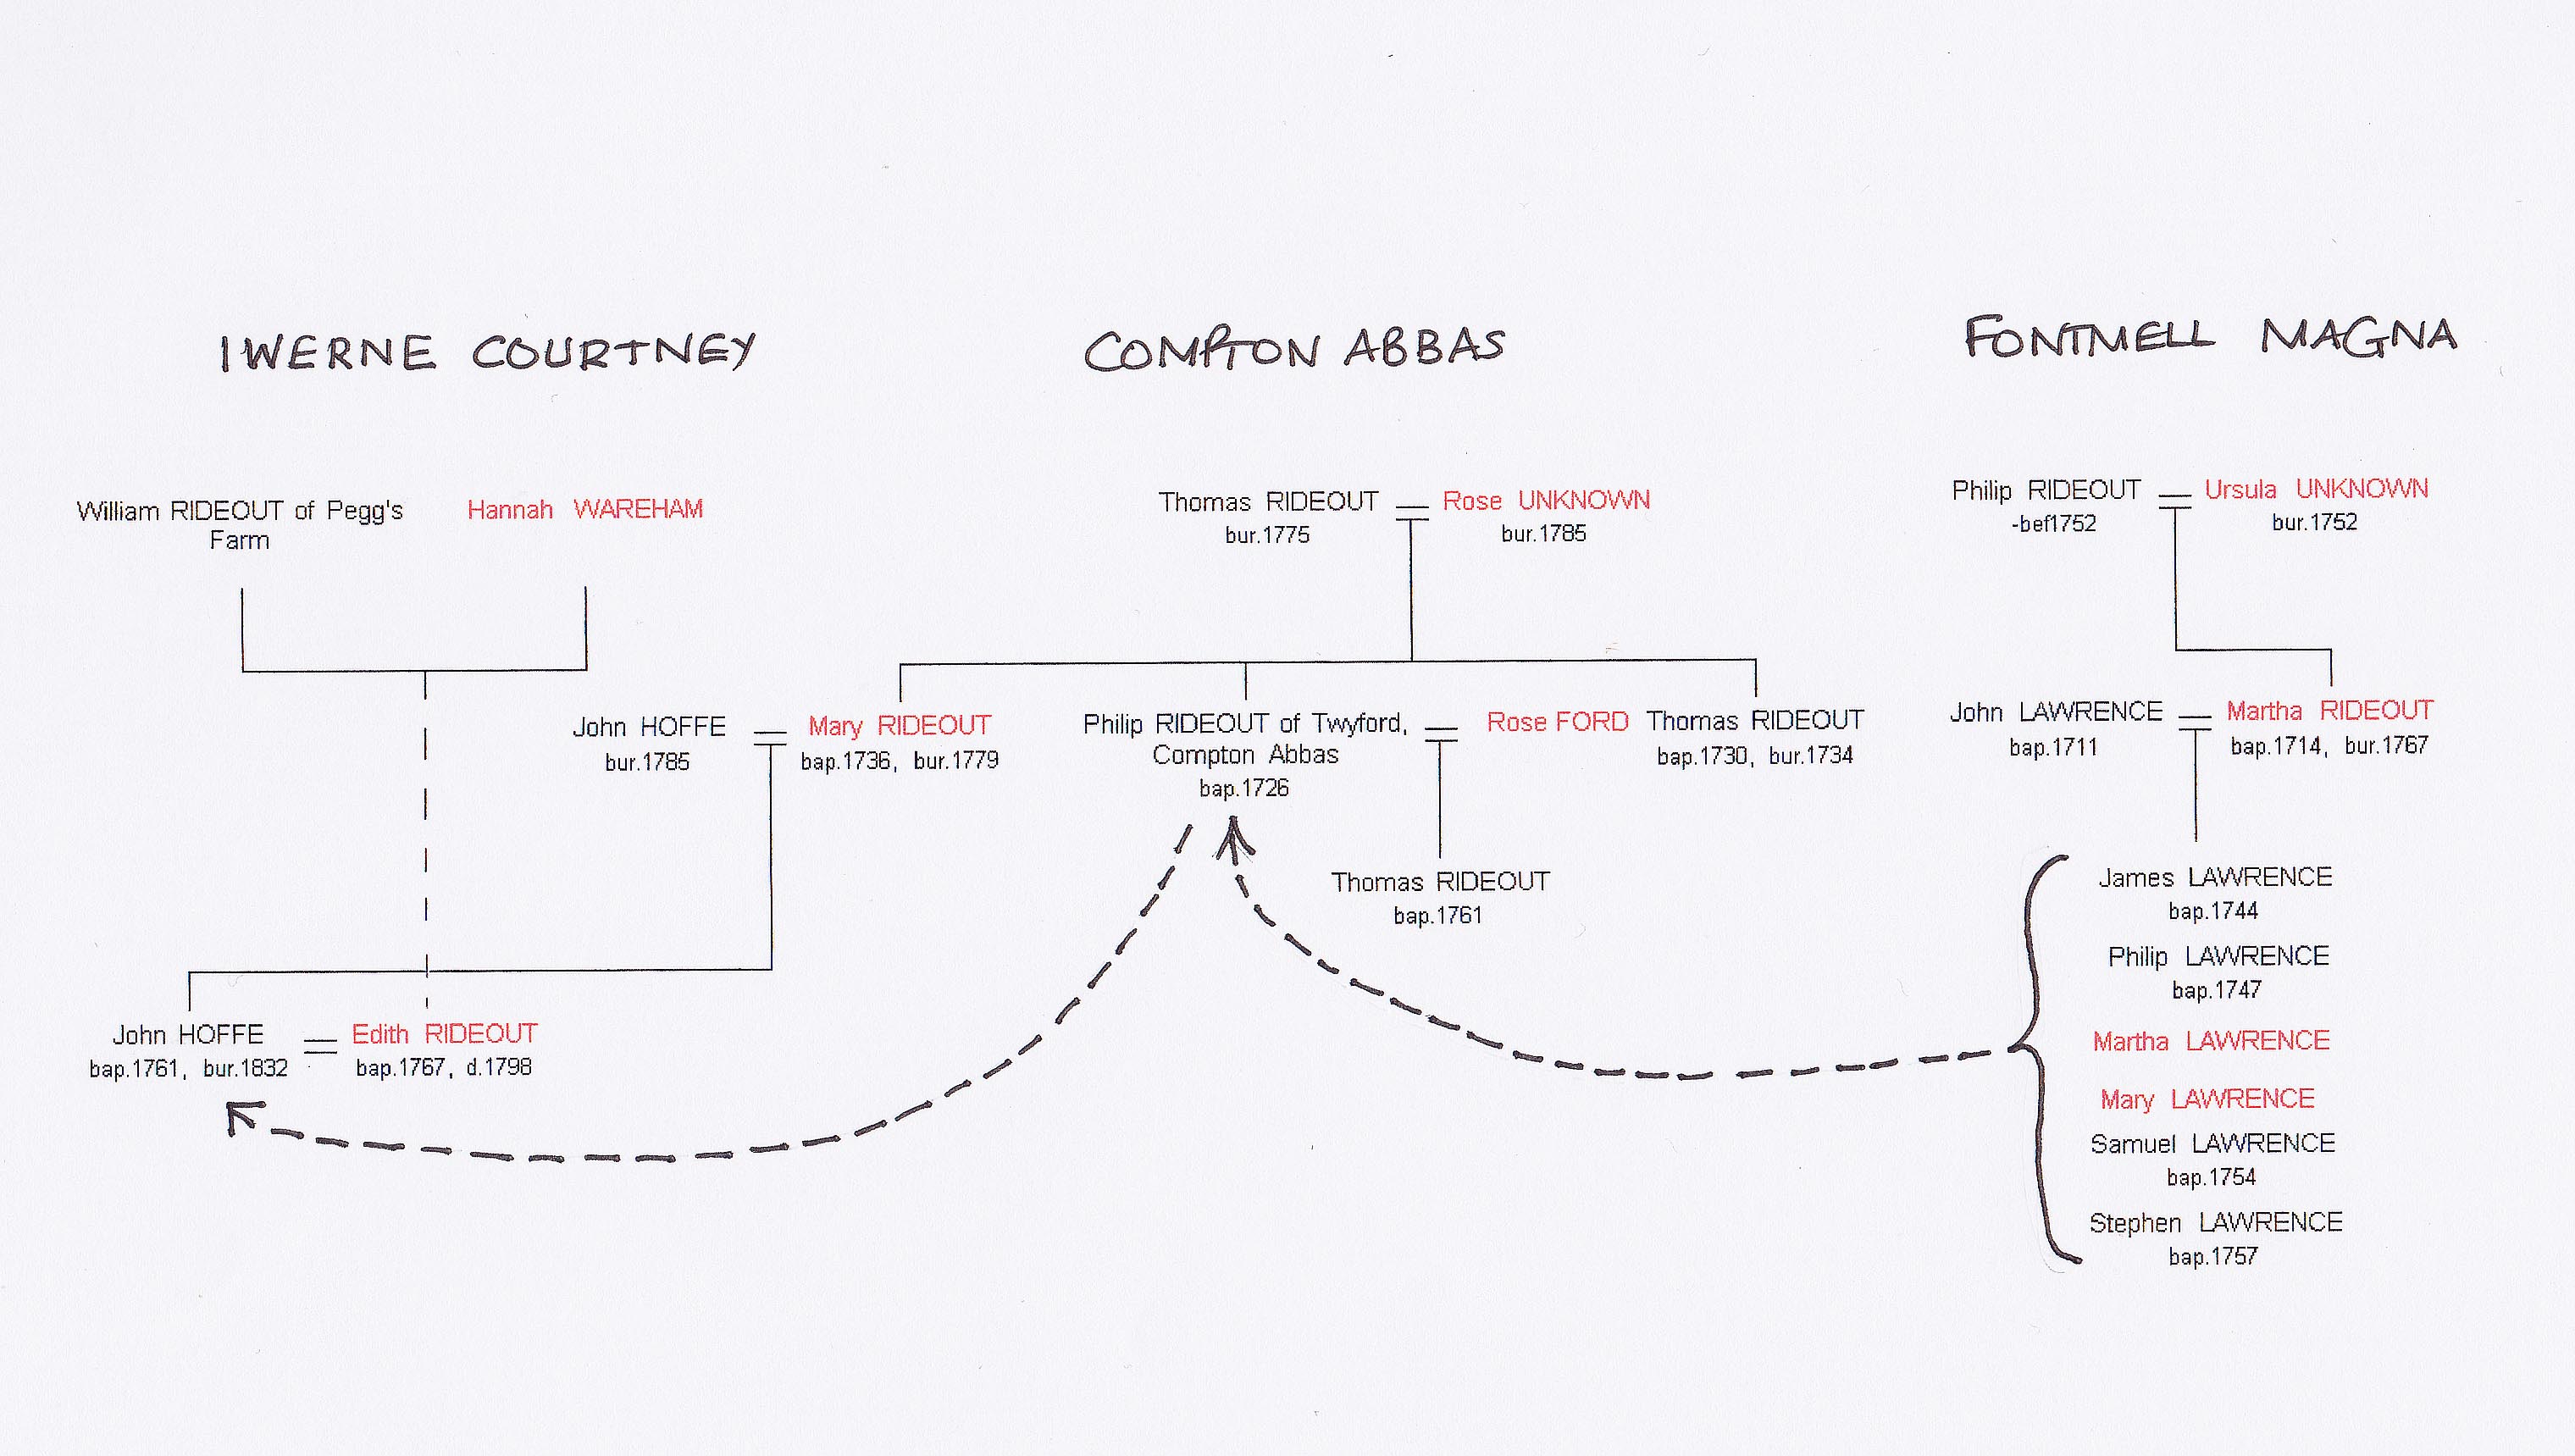 IWERNE COURTNEY
COMPTON ABBAS
FONTMELL MAGNA
William RIDEOUT of Pegg's
Farm
Hannah WAREHAM
Thomas RIDEOUT
bur.1775
Rose UNKNOWN
bur.1785
Philip RIDEOUT
-bef1752
Ursula UNKNOWN
bur.1752
John HOFFE
bur.1785
Mary RIDEOUT
bap.1736, bur.1779
Philip RIDEOUT of Twyford,
Compton Abbas
bap.1726
Rose FORD
Thomas RIDEOUT
bap.1730, bur.1734
John LAWRENCE
bap.1711
Martha RIDEOUT
bap.1714, bur.1767
Thomas RIDEOUT
bap.1761
John HOFFE
bap.1761, bur.1832
Edith RIDEOUT
bap.1767, d.1798
James LAWRENCE
bap.1744
Philip LAWRENCE
bap.1747
Martha LAWRENCE
Mary LAWRENCE
Samuel LAWRENCE
bap.1754
Stephen LAWRENCE
bap.1757